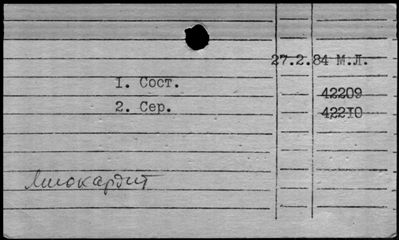 27.2.84 М.Л.
1. Сост.
42209
2. Сер.
42210
Миокардит